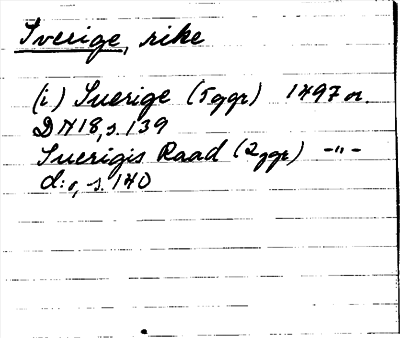 Sverige, rike
(i) Suerige (5 ggr) 1497 or.
DN 18, s. 139
Suerigis Raad (2 ggr) -"-
d:o, s. 140